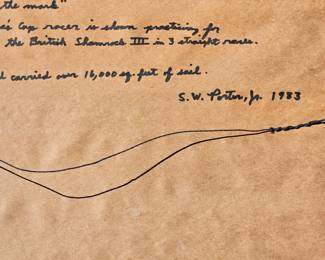 the mark"
's Cup racer is shown practicing for
the British Shamrock III in 3 straight races.
carried over 16,000 sq. feet of sail.
S.W. Porter, Jr. 1983